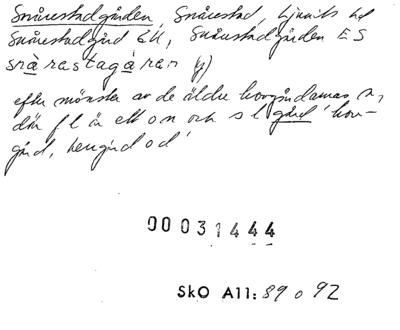 Snårestadgården, Snårestad, Ljunits hd
Snårestadgård EU, Snårestadgården ES
snårastagåren
efter mönster av de äldre herrgårdarnas n,
där f l är ett on och s l gård 'herr-
gård,
00031444
SkO All: 89 o 92